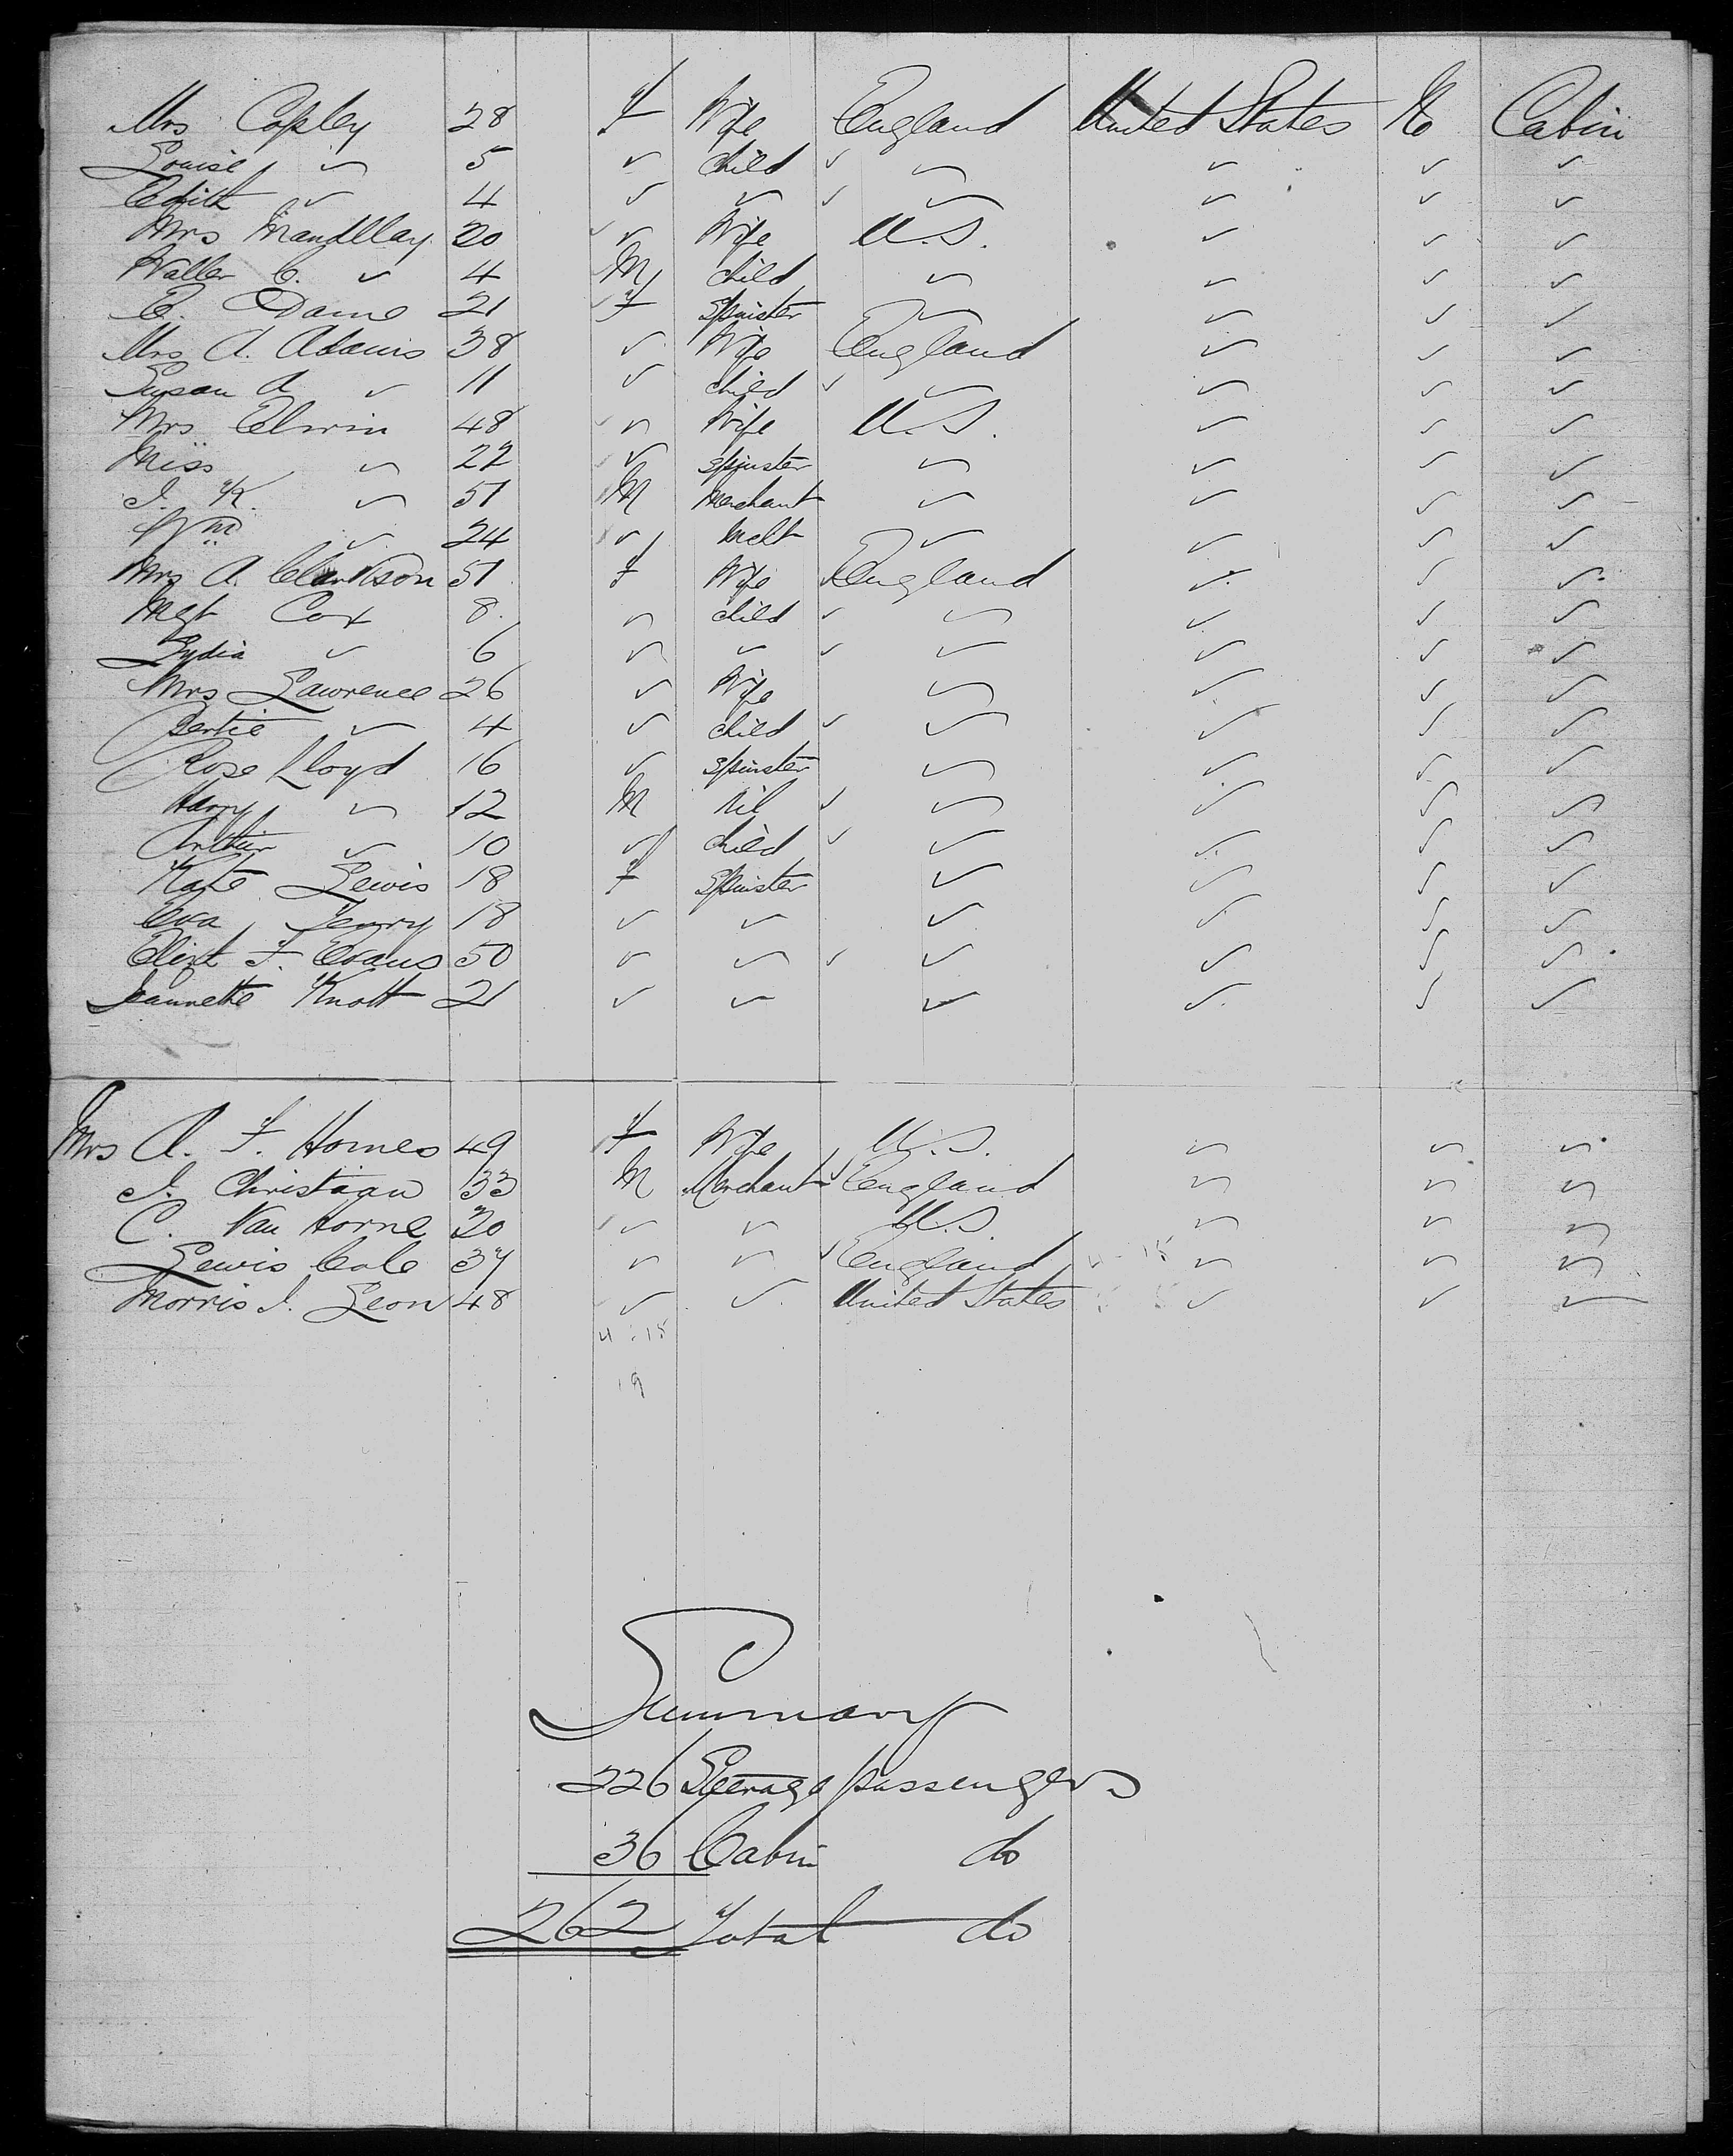 Mrs Copley 28 F Wife England United States No Cabin
Louise ✓ 5 ✓ child ✓ ✓ ✓ ✓ ✓
Edith ✓ 4 ✓ ✓ ✓ ✓ ✓ ✓ ✓
Mrs 20 ✓ Wife U.S. ✓ ✓ ✓
Walter C. ✓ 4 M child ✓ ✓ ✓ ✓
E. Dame 21 F Spinster ✓ ✓ ✓ ✓
Mrs A. Adams 38 ✓ Wife England ✓ ✓ ✓
Susan A ✓ 11 ✓ child ✓ ✓ ✓ ✓ ✓
Mrs Elwin 48 ✓ Wife U.S. ✓ ✓ ✓
Miss ✓ 22 ✓ Spinster ✓ ✓ ✓ ✓
J. K. ✓ 51 M Merchant ✓ ✓ ✓ ✓
Wm ✓ 24 ✓ ✓ ✓ ✓ ✓
Mrs A. Clarkson 51 F Wife England ✓ ✓ ✓
Mgt Cox 8 ✓ child ✓ ✓ ✓ ✓ ✓
Lydia ✓ 6 ✓ ✓ ✓ ✓ ✓ ✓ ✓
Mrs Lawrence 26 ✓ Wife ✓ ✓ ✓ ✓
Bertie ✓ 4 ✓ child ✓ ✓ ✓ ✓ ✓
Rose Lloyd 16 ✓ Spinster ✓ ✓ ✓ ✓
Harry ✓ 12 M Nil ✓ ✓ ✓ ✓ ✓
Arthur ✓ 10 ✓ child ✓ ✓ ✓ ✓ ✓
Kate Lewis 18 F Spinster ✓ ✓ ✓ ✓
Eva 18 ✓ ✓ ✓ ✓ ✓ ✓
F. Evans 50 ✓ ✓ ✓ ✓ ✓ ✓ ✓
Jeannette Knott 21 ✓ ✓ ✓ ✓ ✓ ✓
Mrs A. F. Homes 49 F Wife U.S. ✓ ✓ ✓
J. Christian 33 M Merchant ✓ England ✓ ✓ ✓
C. Van Horne 20 ✓ ✓ U.S. ✓ ✓ ✓
Lewis Cole 37 ✓ ✓ ✓ England ✓ ✓ ✓
Morris J. Leon 48 ✓ ✓ United States ✓ ✓ ✓
Summary
226 Steerage passengers
36 Cabin do
262 Total do